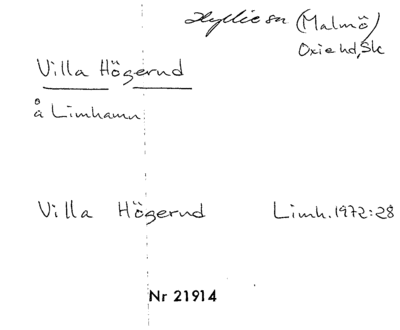 Hyllie sn (Malmö)
Oxie hd, Sk
Villa Högerud
å Limhamn
Villa Högerud Limh. 1972:28
Nr 21914